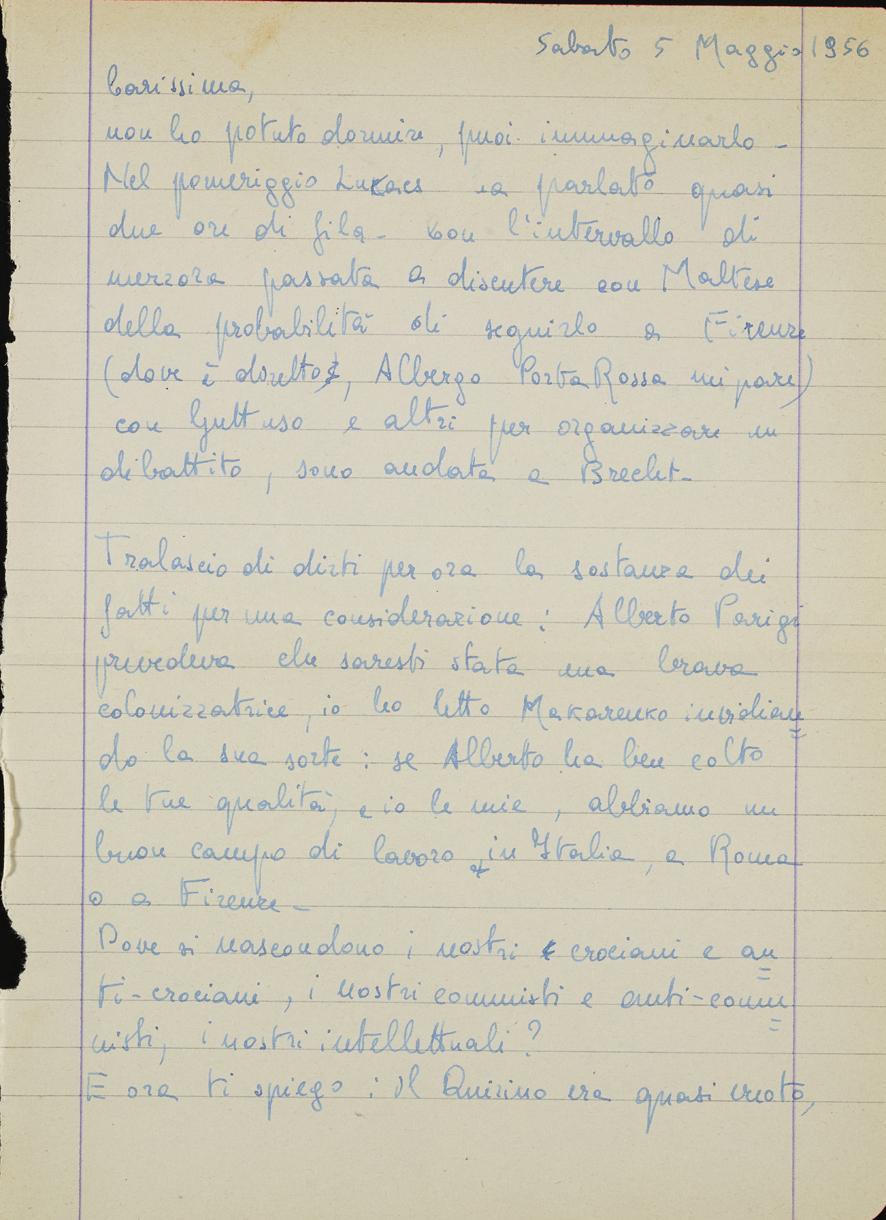 Sabato 5 Maggio 1956
Carissima,
non ho potuto dormire, puoi immaginarlo -
Nel pomeriggio Lukacs ha parlato quasi
due ore di fila - con l'intervallo di
mezzora passata a discutere con Maltese
della probabilità di seguirlo a Firenze
(dove è diretto, Albergo Porta Rossa mi pare)
con Guttuso e altri per organizzare un
dibattito, sono andata a Brecht -
Tralascio di dirti per ora la sostanza dei
fatti per una considerazione: Alberto Parigi
prevedeva che saresti stata una brava
colonizzatrice, io ho letto Makarenko invidian=
do la sua sorte: se Alberto ha ben colto
le tue qualità, e io le mie, abbiamo un
buon campo di lavoro, in Italia, a Roma
o a Firenze -
Dove si nascondono i nostri crociani e an=
ti-crociani, i nostri comunisti e anti-comu=
nisti, i nostri intellettuali?
E ora ti spiego: il Quirino era quasi vuoto,